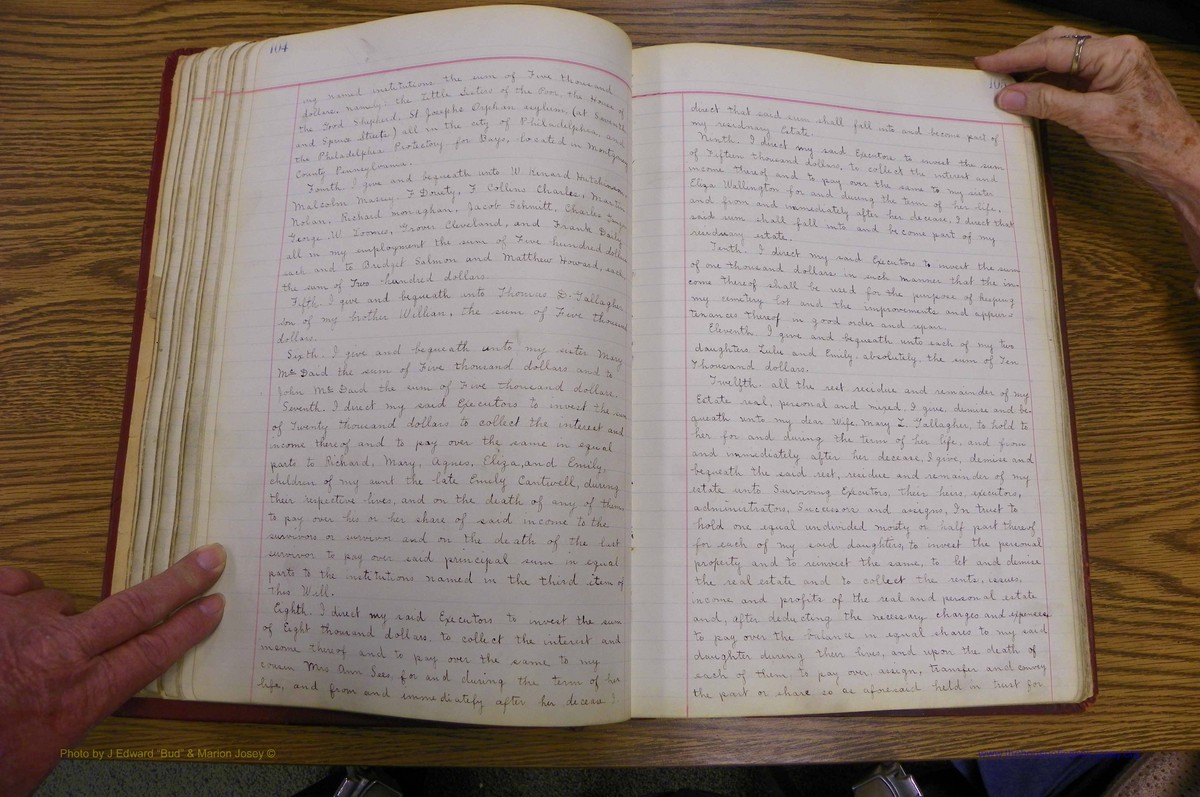 104
ing named institutions the sum of Five thousand
dollars, namely: the Little Sisters of the Poor, the House of
the Good Shepherd, St. Josephs Orphan asylum, (at Seventh
and Spruce Streets) all in the city of Philadelphia, and
the Philadelphia Protectory for Boys, located in Montgomery
County Pennsylvania.
Fourth. I give and bequeath unto W. Kenard Hutchinson,
Malcolm Massey, F Doruty, F Collins Charles, Martin
Nolan, Richard Monaghan, Jacob Schmitt, Charles
George W. Loomis, Grover Cleveland, and Frank Daily
all in my employment the sum of Five hundred dollars
each and to Bridget Salmon and Matthew Howard, each
the sum of Two hundred dollars.
Fifth. I give and bequeath unto Thomas D. Gallagher
son of my brother William, the sum of Five thousand
dollars.
Sixth. I give and bequeath unto my sister Mary
McDaid the sum of Five thousand dollars and to
John McDaid the sum of Five thousand dollars.
Seventh. I direct my said Executors to invest the sum
of Twenty thousand dollars to collect the interest and
income thereof and to pay over the same in equal
parts to Richard, Mary, Agnes, Eliza, and Emily,
children of my aunt the late Emily Cantwell, during
their respective lives, and on the death of any of them
to pay over his or her share of said income to the
survivors or survivor and on the death of the last
survivor to pay over said principal sum in equal
parts to the institutions named in the third item of
this Will.
Eighth. I direct my said Executors to invest the sum
of Eight thousand dollars, to collect the interest and
income thereof and to pay over the same to my
cousin Mrs Ann Sees, for and during the term of her
life, and from and immediately after her decease I
105
direct that said sum shall fall into and become part of
my residuary Estate.
Ninth. I direct my said Executors to invest the sum
of Fifteen thousand dollars, to collect the interest and
income thereof and to pay over the same to my sister
Eliza Wellington for and during the term of her life,
and from and immediately after her decease, I direct that
said sum shall fall into and become part of my
residuary estate.
Tenth. I direct my said Executors to invest the sum
of one thousand dollars in such manner that the in-
come thereof shall be used for the purpose of keeping
my cemetery lot and the improvements and appur-
tenances thereof in good order and repair.
Eleventh. I give and bequeath unto each of my two
daughters Lulu and Emily, absolutely, the sum of Ten
Thousand dollars.
Twelfth. all the rest residue and remainder of my
Estate real, personal and mixed, I give, demise and be-
queath unto my dear Wife, Mary Z. Gallagher, to hold to
her for and during the term of her life, and from
and immediately after her decease, I give, demise and
bequeath the said rest, residue and remainder of my
estate unto Surviving Executors, their heirs, executors,
administrators, Successors and assigns, In trust to
hold one equal undivided moity or half part thereof
for each of my said daughters, to invest the personal
property and to reinvest the same, to let and demise
the real estate and to collect the rents, issues,
income and profits of the real and personal estate
and, after deducting the necessary charges and expenses
to pay over the balance in equal shares to my said
daughter during their lives, and upon the death of
each of them, to pay over, assign, transfer and convey
the part or share so as aforesaid held in trust for
Photo by J Edward "Bud" & Marion Josey ©